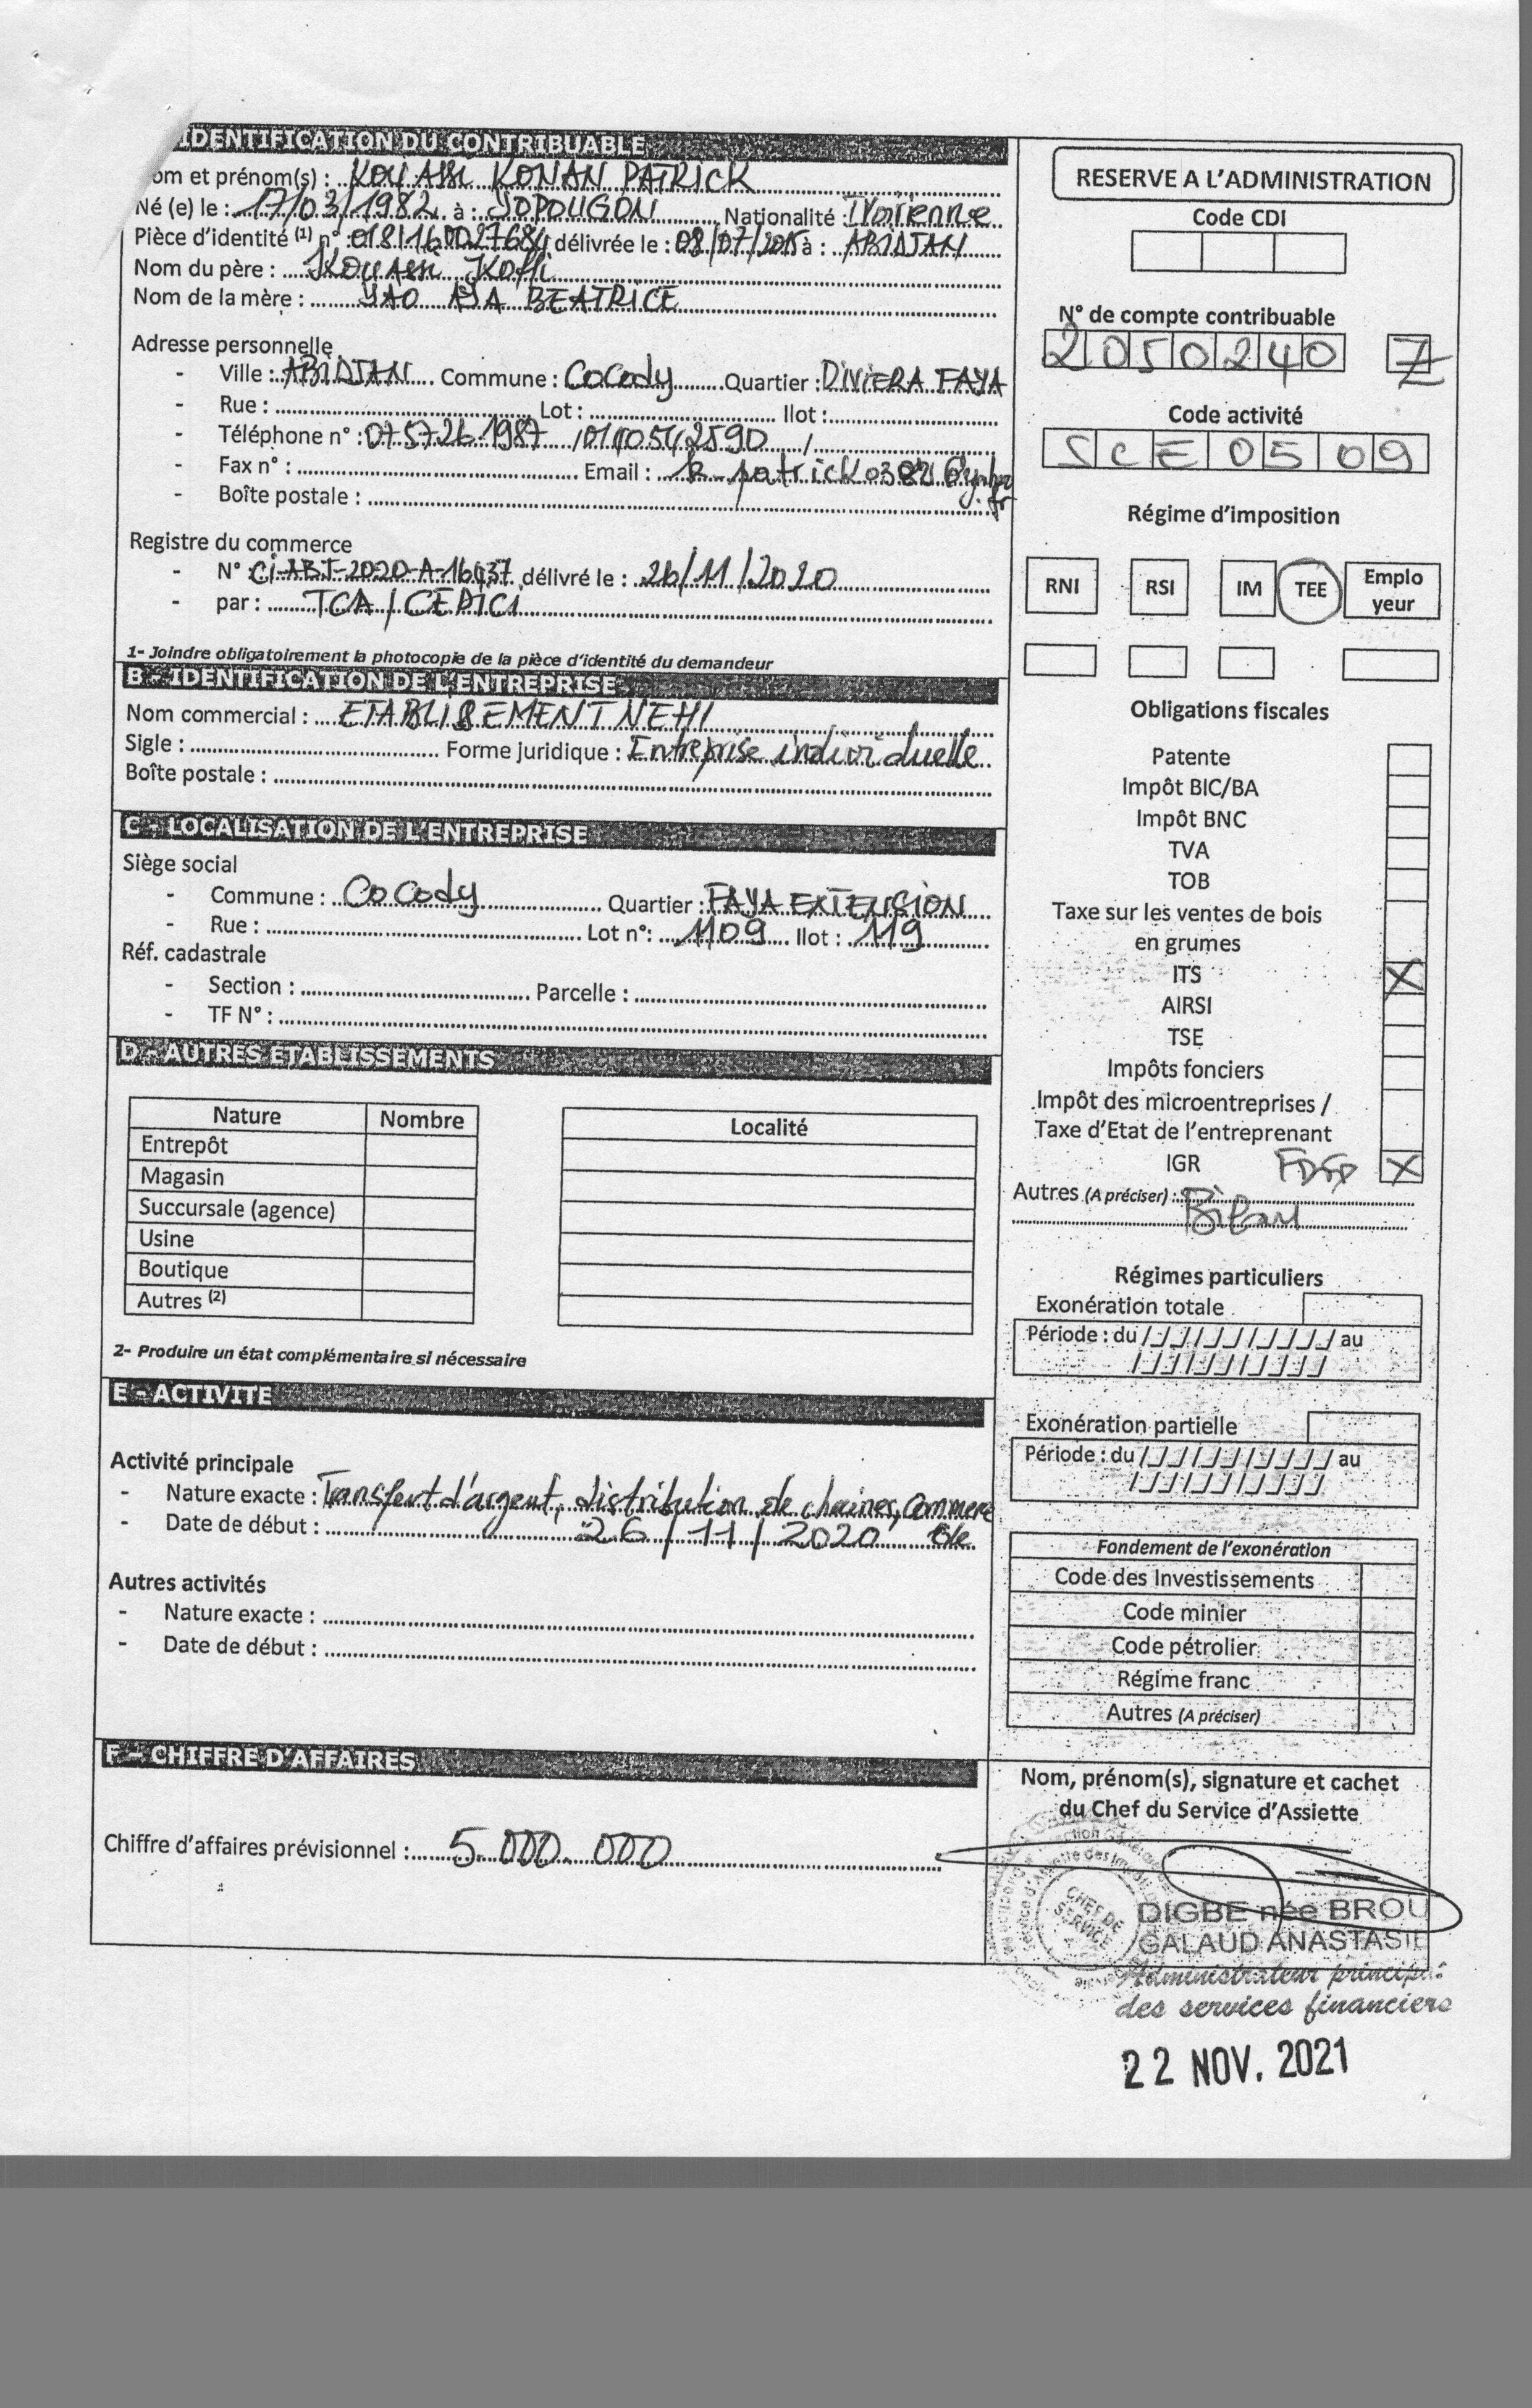 IDENTIFICATION DU CONTRIBUABLE
om et prénom(s) : KOUASSI KONAN PATRICK
Né (e) le : 17/03/1982 à : YOPOUGON Nationalité : IVoirienne
Pièce d'identité (1) n° : délivrée le : 08/07/2015 à : ABIDJAN
Nom du père : KOUASSI Koffi
Nom de la mère : YAO AYA BEATRICE
Adresse personnelle
- Ville : ABIDJAN Commune : Cocody Quartier : RIVIERA FAYA
- Rue : Lot : Ilot :
- Téléphone n° : 0757261987 / 0140542590 /
- Fax n° : Email :
- Boîte postale :
Registre du commerce
- N° : CI-ABJ-2020-A-16437 délivré le : 26/11/2020
- par : TCA / CEPICI
1- Joindre obligatoirement la photocopie de la pièce d'identité du demandeur
B - IDENTIFICATION DE L'ENTREPRISE
Nom commercial : ETABLISEMENT NEHI
Sigle : Forme juridique : Entreprise individuelle
Boîte postale :
C - LOCALISATION DE L'ENTREPRISE
Siège social
- Commune : Cocody Quartier : FAYA EXTENSION
- Rue : Lot n°: 1109 Ilot : 119
Réf. cadastrale
- Section : Parcelle :
- TF N° :
D - AUTRES ETABLISSEMENTS
Nature Nombre Localité
Entrepôt
Magasin
Succursale (agence)
Usine
Boutique
Autres (2)
2- Produire un état complémentaire si nécessaire
E - ACTIVITE
Activité principale
- Nature exacte : Transfert d'argent, distribution de chaines, Commerce
- Date de début : 26/11/2020
Autres activités
- Nature exacte :
- Date de début :
F - CHIFFRE D'AFFAIRES
Chiffre d'affaires prévisionnel : 5.000.000
RESERVE A L'ADMINISTRATION
Code CDI
N° de compte contribuable
2050240 Z
Code activité
SCE0509
Régime d'imposition
RNI RSI IM TEE Emplo
yeur
Obligations fiscales
Patente
Impôt BIC/BA
Impôt BNC
TVA
TOB
Taxe sur les ventes de bois
en grumes
ITS X
AIRSI
TSE
Impôts fonciers
Impôt des microentreprises /
Taxe d'Etat de l'entreprenant
IGR X
Autres (A préciser) :
Bilan
Régimes particuliers
Exonération totale
Période : du /_/_/_/_/_/_/_/_/_/_/ au
/_/_/_/_/_/_/_/_/_/_/
Exonération partielle
Période : du /_/_/_/_/_/_/_/_/_/_/ au
/_/_/_/_/_/_/_/_/_/_/
Fondement de l'exonération
Code des Investissements
Code minier
Code pétrolier
Régime franc
Autres (A préciser)
Nom, prénom(s), signature et cachet
du Chef du Service d'Assiette
CHEF DE
SERVICE
DIGBE née BROU
GALAUD ANASTASIE
Administrateur principal
des services financiers
22 NOV. 2021